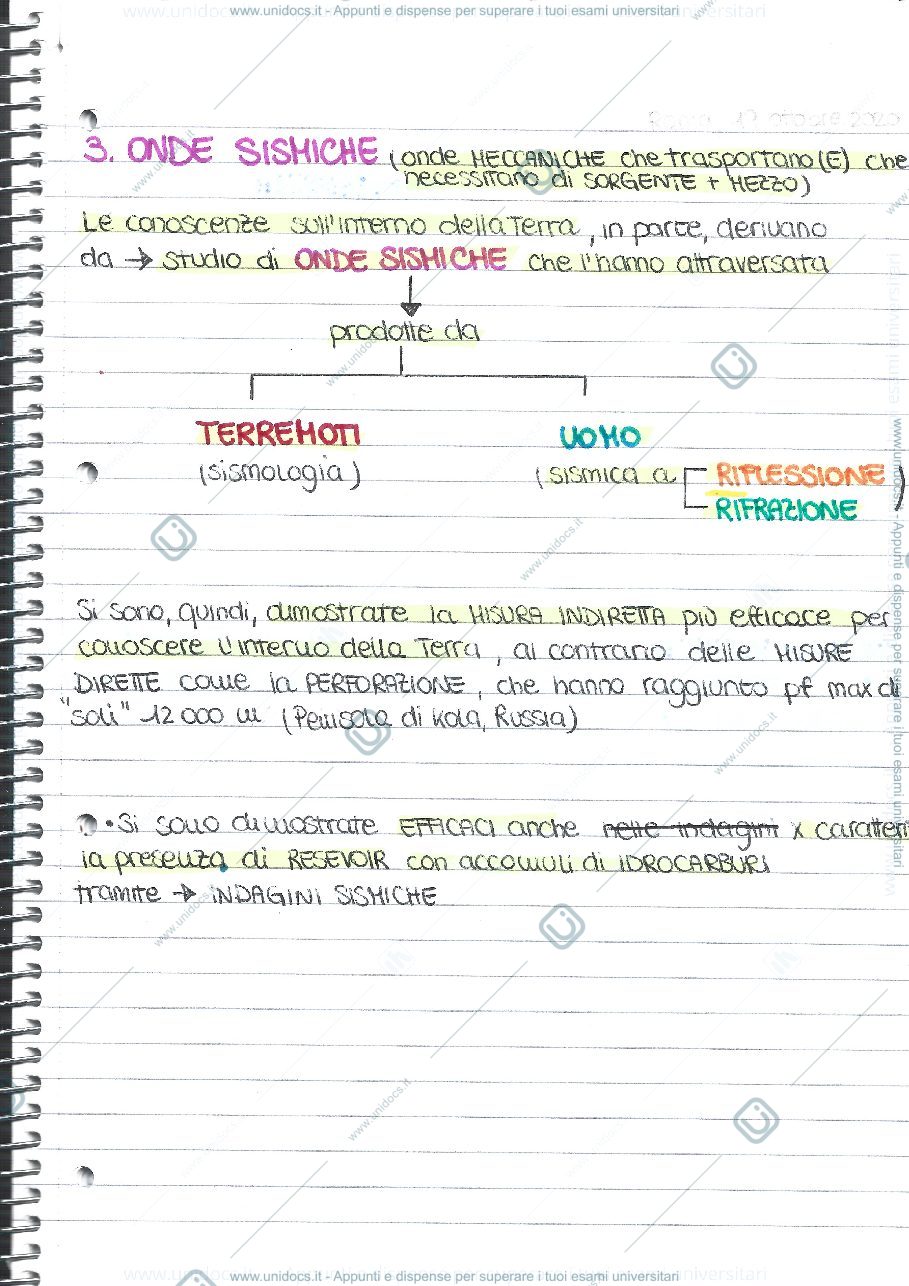 www.unidocs.it - Appunti e dispense per superare i tuoi esami universitari
3. ONDE SISMICHE (onde MECCANICHE che trasportano (E) che
necessitano di SORGENTE + MEZZO)
Le conoscenze sull'interno della Terra, in parte, derivano
da → studio di ONDE SISMICHE che l'hanno attraversata
prodotte da
TERREMOTI UOMO
(sismologia) (sismica a RIFLESSIONE)
RIFRAZIONE
Si sono, quindi, dimostrate la MISURA INDIRETTA più efficace per
conoscere l'interno della Terra, al contrario delle MISURE
DIRETTE come la PERFORAZIONE, che hanno raggiunto pf max di
"soli" 12 000 m (Penisola di Kola, Russia)
• Si sono dimostrate EFFICACI anche nelle indagini x caratteri
la presenza di RESEVOIR con accumuli di IDROCARBURI
tramite → INDAGINI SISMICHE
www.unidocs.it - Appunti e dispense per superare i tuoi esami universitari